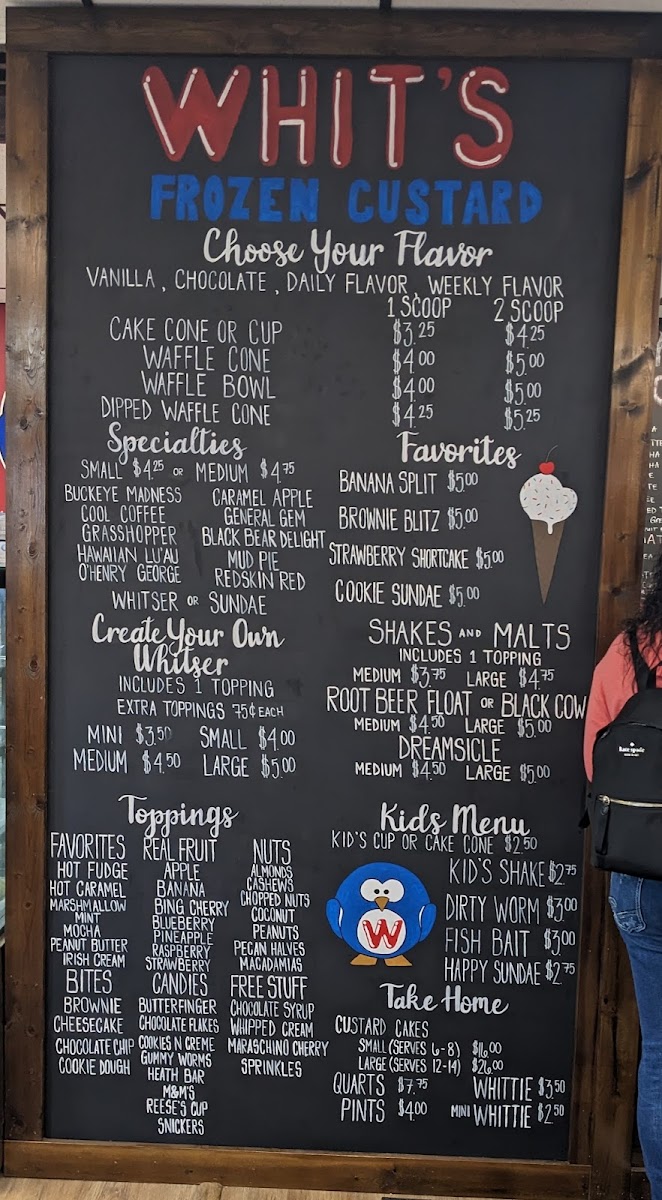 WHIT'S
FROZEN CUSTARD
Choose Your Flavor
VANILLA, CHOCOLATE, DAILY FLAVOR, WEEKLY FLAVOR
1 SCOOP 2 SCOOP
CAKE CONE OR CUP $3.25 $4.25
WAFFLE CONE $4.00 $5.00
WAFFLE BOWL $4.00 $5.00
DIPPED WAFFLE CONE $4.25 $5.25
Specialties
SMALL $4.25 OR MEDIUM $4.75
BUCKEYE MADNESS CARAMEL APPLE
COOL COFFEE GENERAL GEM
GRASSHOPPER BLACK BEAR DELIGHT
HAWAIIAN LU'AU MUD PIE
O'HENRY GEORGE REDSKIN RED
WHITSER OR SUNDAE
Favorites
BANANA SPLIT $5.00
BROWNIE BLITZ $5.00
STRAWBERRY SHORTCAKE $5.00
COOKIE SUNDAE $5.00
Create Your Own
Whitser
INCLUDES 1 TOPPING
EXTRA TOPPINGS 75¢ EACH
MINI $3.50 SMALL $4.00
MEDIUM $4.50 LARGE $5.00
SHAKES AND MALTS
INCLUDES 1 TOPPING
MEDIUM $3.75 LARGE $4.75
ROOT BEER FLOAT OR BLACK COW
MEDIUM $4.50 LARGE $5.00
DREAMSICLE
MEDIUM $4.50 LARGE $5.00
Toppings
FAVORITES
HOT FUDGE
HOT CARAMEL
MARSHMALLOW
MINT
MOCHA
PEANUT BUTTER
IRISH CREAM
BITES
BROWNIE
CHEESECAKE
CHOCOLATE CHIP
COOKIE DOUGH
REAL FRUIT
APPLE
BANANA
BING CHERRY
BLUEBERRY
PINEAPPLE
RASPBERRY
STRAWBERRY
CANDIES
BUTTERFINGER
CHOCOLATE FLAKES
COOKIES N CREME
GUMMY WORMS
HEATH BAR
M&M'S
REESE'S CUP
SNICKERS
NUTS
ALMONDS
CASHEWS
CHOPPED NUTS
COCONUT
PEANUTS
PECAN HALVES
MACADAMIAS
FREE STUFF
CHOCOLATE SYRUP
WHIPPED CREAM
MARASCHINO CHERRY
SPRINKLES
Kids Menu
KID'S CUP OR CAKE CONE $2.50
KID'S SHAKE $2.75
DIRTY WORM $3.00
FISH BAIT $3.00
HAPPY SUNDAE $2.75
W
Take Home
CUSTARD CAKES
SMALL (SERVES 6-8) $16.00
LARGE (SERVES 12-14) $26.00
QUARTS $7.75 WHITTIE $3.50
PINTS $4.00 MINI WHITTIE $2.50
kate spade